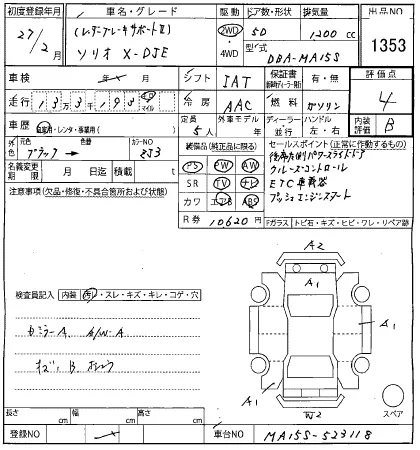 初度登録年月 車名・グレード 駆動 ドア数・形状 排気量 出品NO
27/2月 (レーダーブレーキサポートⅡ) 2WD 5D 1200cc 1353
ソリオ X-DJE ・4WD 型式 DBA-MA15S
車検 年 月 シフト IAT 保証書 有・無 評価点
走行 13万3千198 キロ マイル 冷房 AAC 燃料 ガソリン 4
車歴 自家用・レンタ・事業用( ) 定員 5人 外車モデル 年 ディーラー・並行 ハンドル 左・右 内装評価 B
外色 元色 ブラック 色替 カラーNO ZJ3
名義変更期限 月 日迄 積載 t
装備品(純正品に限る)
PS PW AW
SR TV ナビ
カワ エアB ABS
R券 10620円
セールスポイント(正常に作動するもの)
後席左側パワースライドドア
クルーズコントロール
ETC車載器
プッシュエンジンスタート
注意事項(欠品・修復・不具合箇所および状態)
Fガラス トビ石・キズ・ヒビ・ワレ・リペア跡
検査員記入 内装 汚レ・スレ・キズ・キレ・コゲ・穴
A2
A1
A1
A1
スペア
長さ cm 幅 cm 高さ cm
登録NO 車台NO MA15S-523118